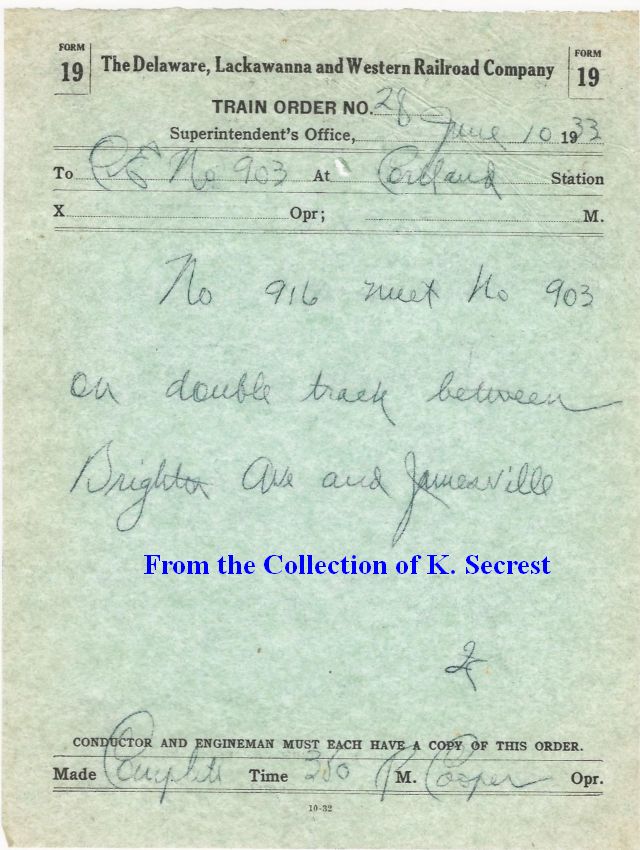 FORM 19 The Delaware, Lackawanna and Western Railroad Company FORM 19
TRAIN ORDER NO. 28
Superintendent's Office, June 10 1933
To C&E No 903 At Cortland Station
X Opr; M.
No 916 meet No 903
on double track between
Brighton Ave and Jamesville
From the Collection of K. Secrest
CONDUCTOR AND ENGINEMAN MUST EACH HAVE A COPY OF THIS ORDER.
Made Complete Time 350 P M. Cooper Opr.
10-32